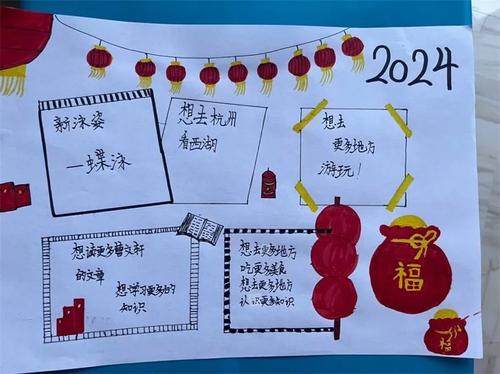 2024
新泳姿
—蝶泳
想去杭州
看西湖
想去
更多地方
游玩！
想读更多曹文轩
的文章
想学习更多的
知识
想去更多地方
吃更多美食
想去更多地方
认识更多知识
福
福